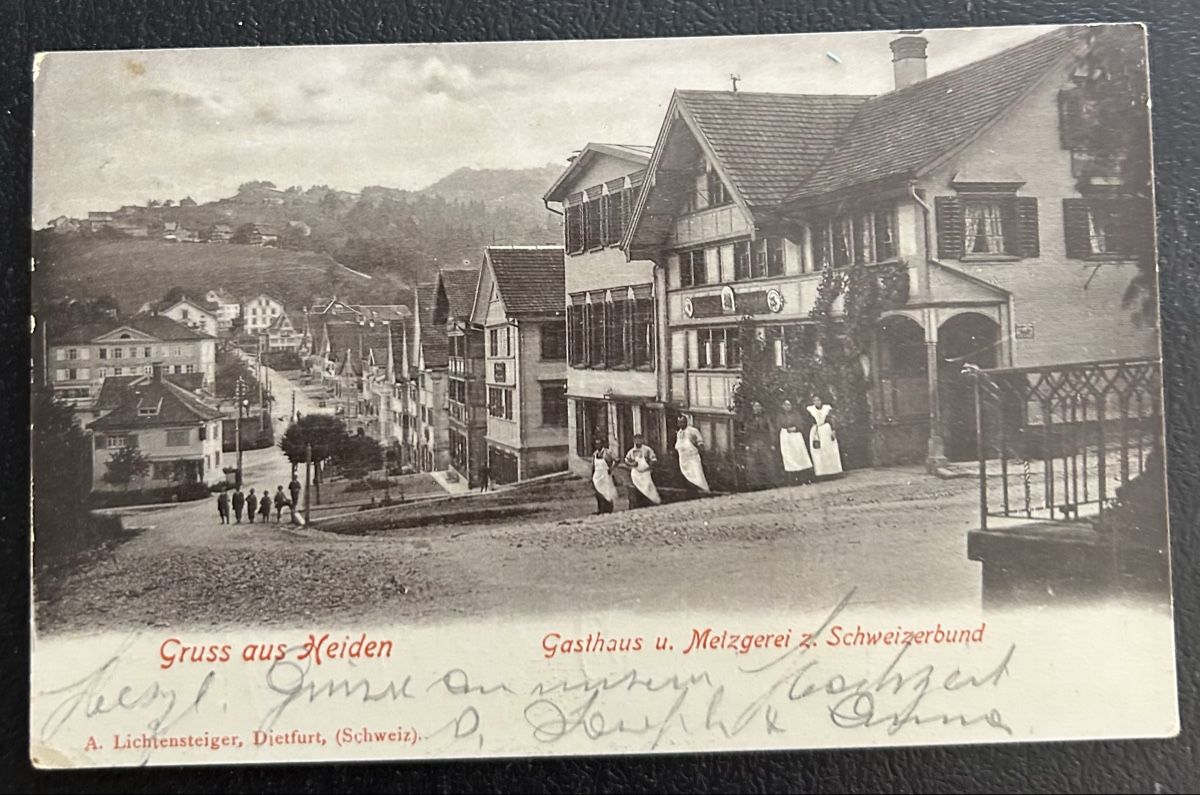 Gruss aus Heiden
Gasthaus u. Metzgerei z. Schweizerbund
Herzl. Grüsse an unserm Hochzeit
A. Lichtensteiger, Dietfurt, (Schweiz).
Joseph & Anna